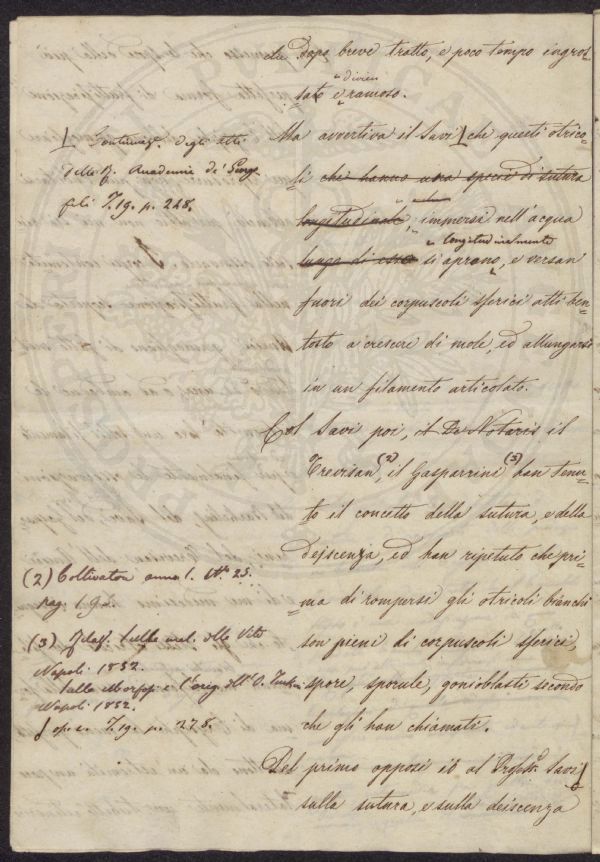 che dopo breve tratto, e poco tempo ingros-
divien
sato e ramoso.
Ma avvertiva il Savi che questi otrico-
li che hanno una specie di sutura
longitudinale, immersi nell'acqua
longitudinalmente
lungo di essa si aprono, e versan
fuori dei corpuscoli sferici atti ben-
tosto a crescere di mole, ed allungarsi
in un filamento articolato.
Col Savi poi, il De Notaris il
Trevisan (2), il Gasparrini (3) han tenu-
to il concetto della sutura, e della
deiscenza, ed han ripetuto che pri-
ma di rompersi gli otricoli bianchi
son pieni di corpuscoli sferici,
spore, sporule, gonioblasti secondo
che gli han chiamati.
Del primo opposi io al Profess. Savi
sulla sutura, e sulla deiscenza
1 Continuaz. degli atti
della R. Accademia de' Georgo
fili T. 19. p. 228.
(2) Coltivatore anno 1. N. 25.
pag. 1
(3) Relaz. sulla mal. della Vite
Napoli 1852.
sulla Morfol. e l'orig. dell'O. Tuckeri
Napoli 1852.
T. 19. p. 278.